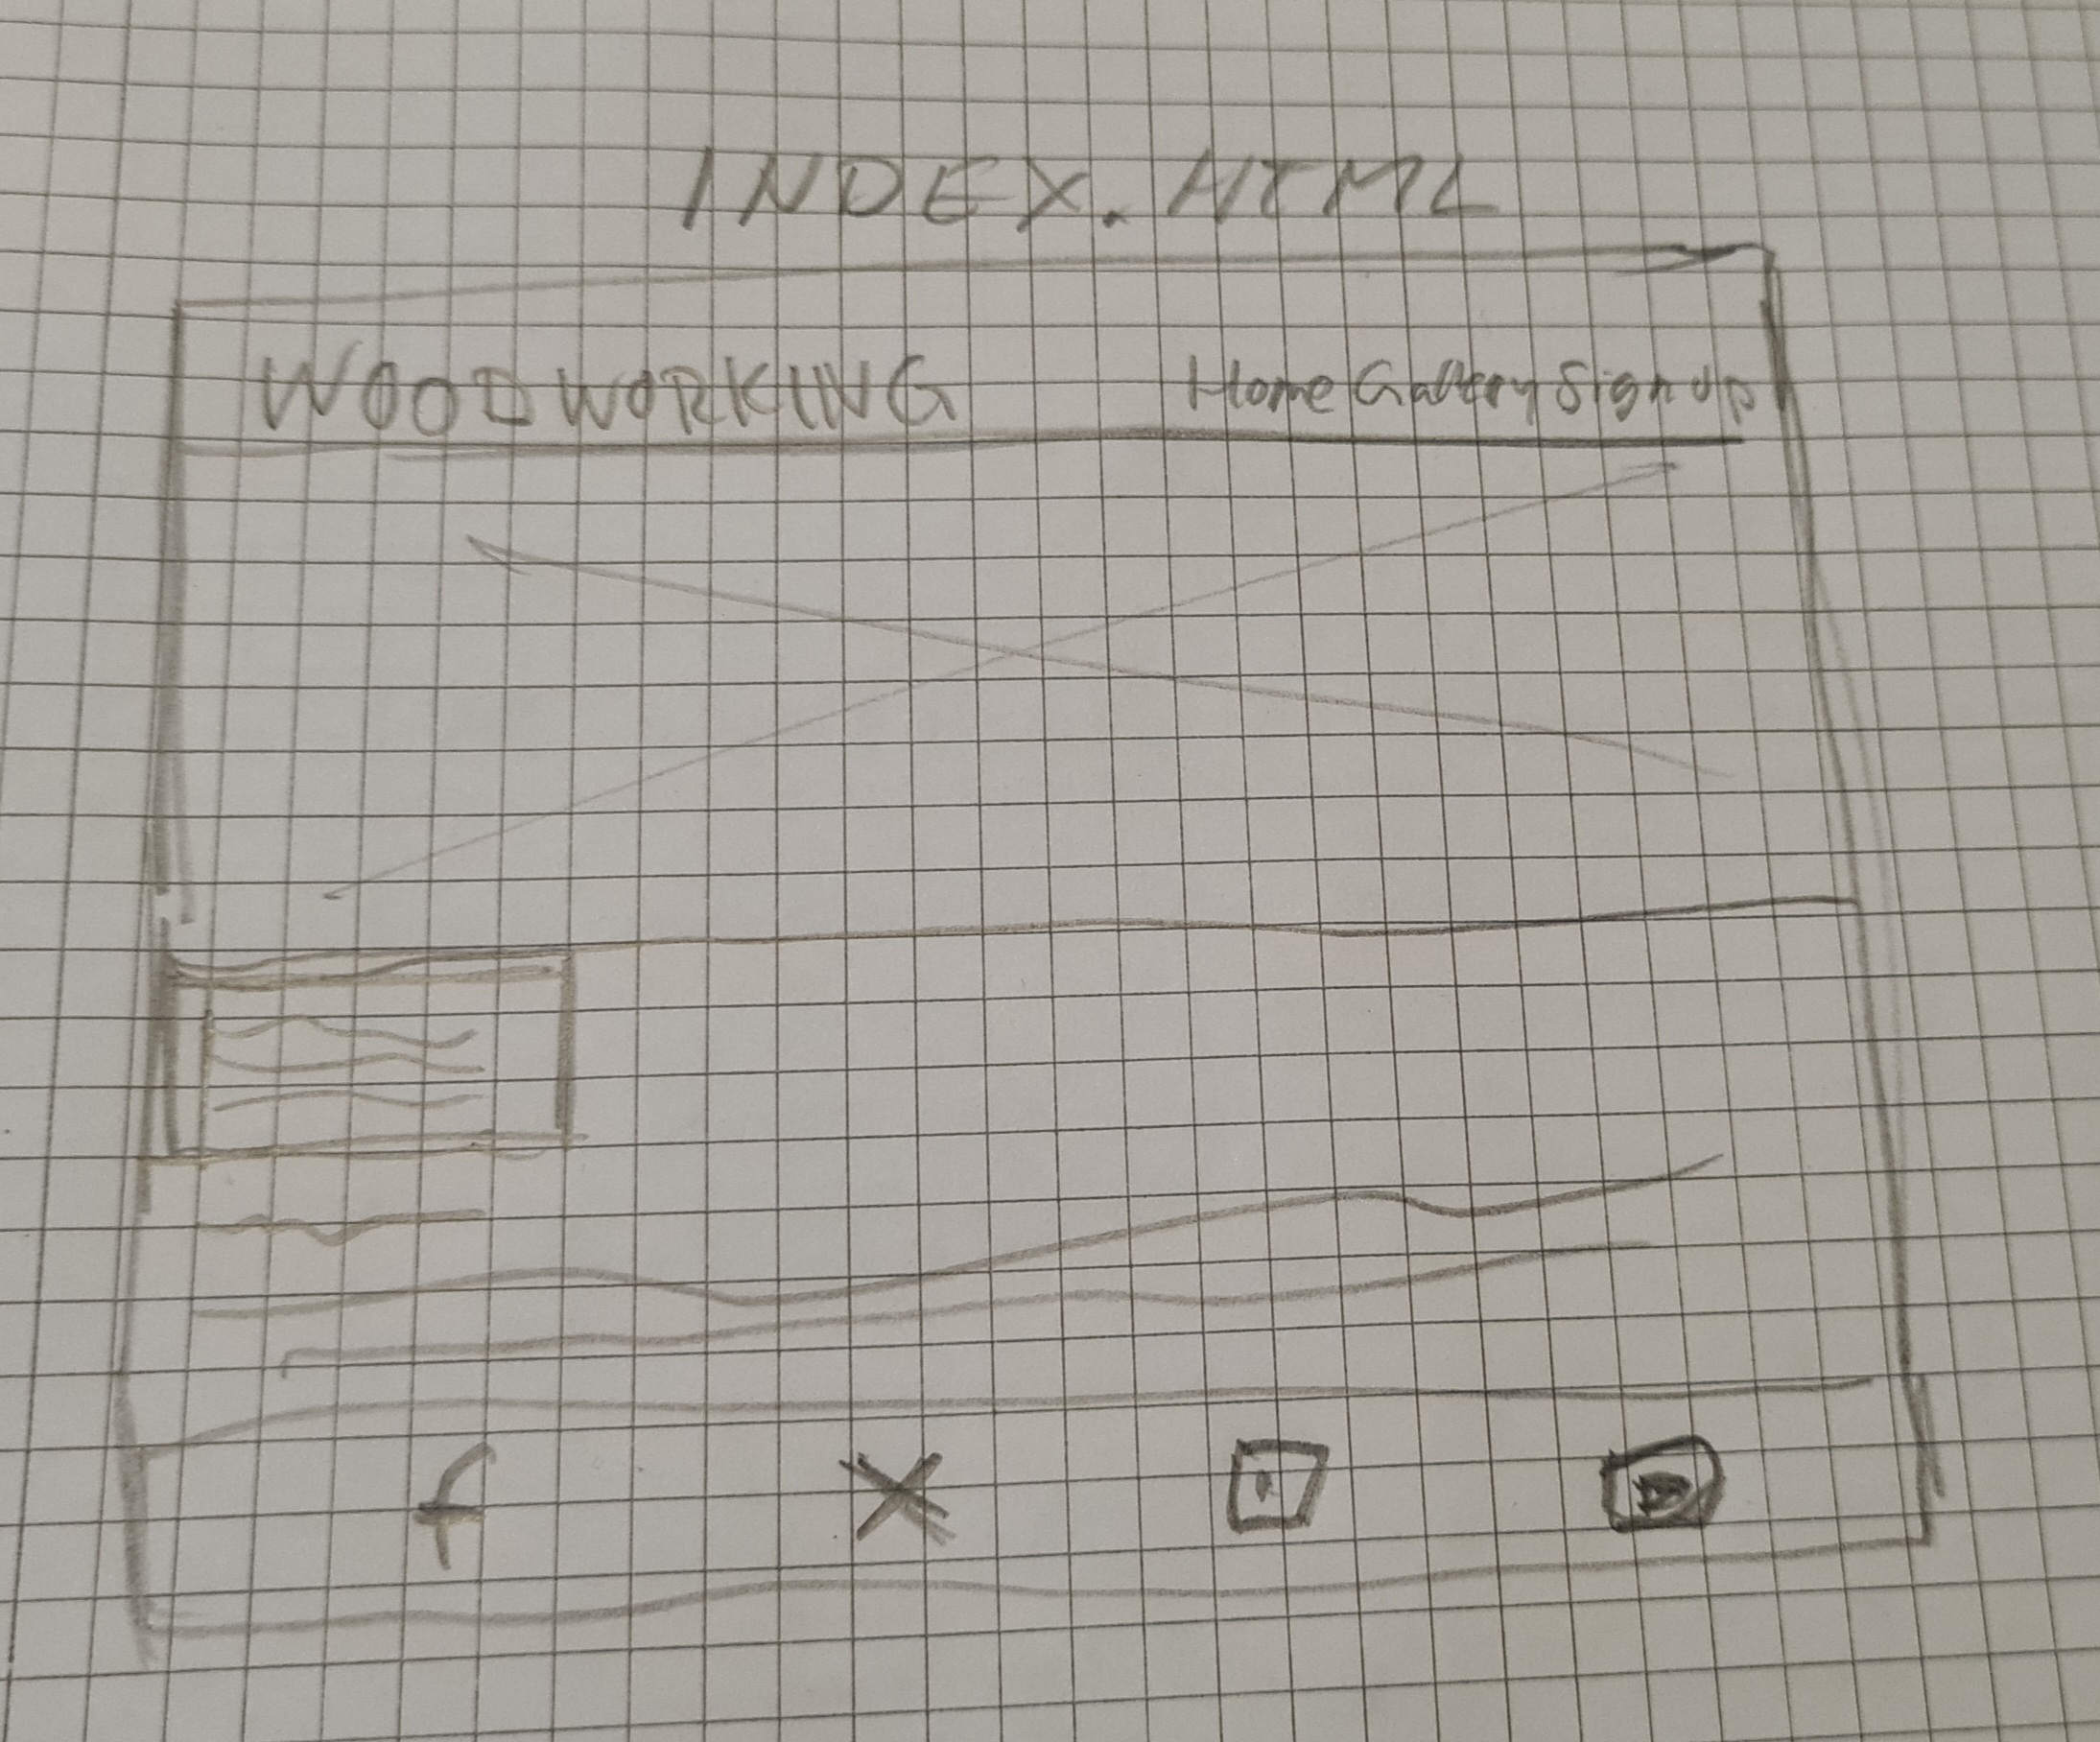 INDEX.HTML
WOODWORKING Home Gallery Sign up
f X